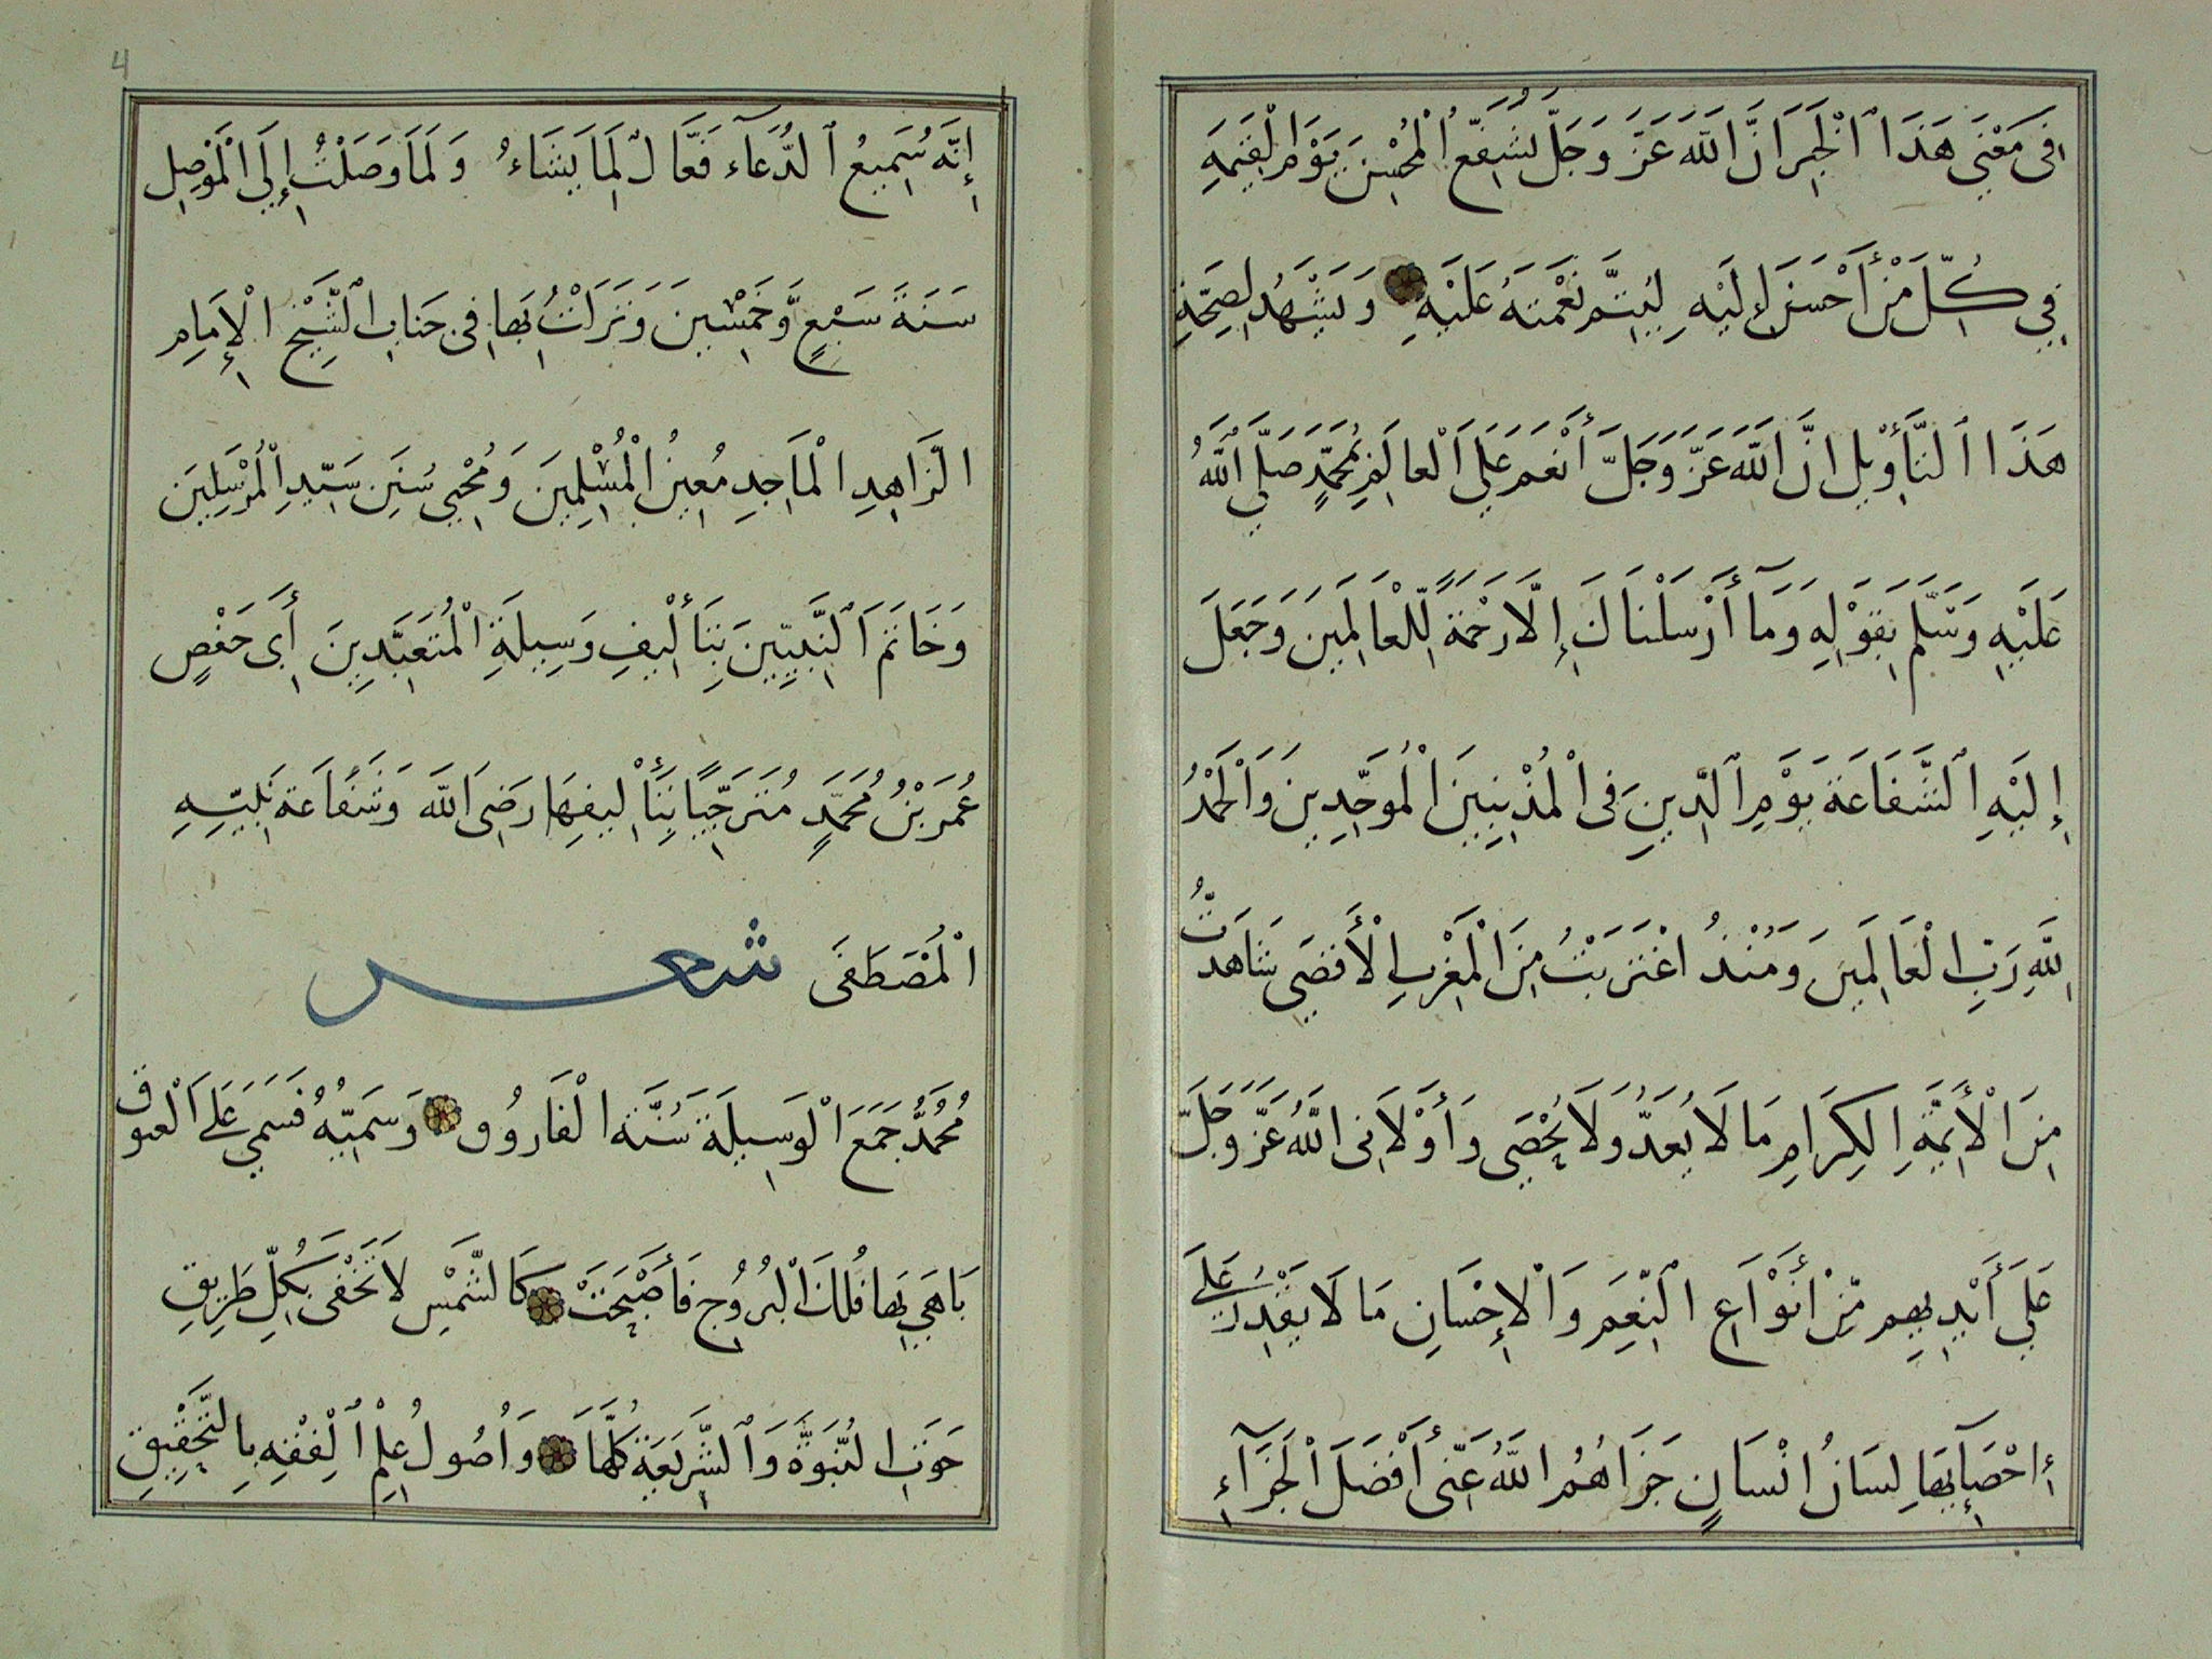 فِى مَعْنَى هَذَا ٱلْخَبَرِ انَّ اللَّهَ عَزَّ وَجَلَّ يُشَفِّعُ الْمُحْسِنَ يَوْمَ الْقِيَمَةِ
فِي كُلِّ مَنْ أَحْسَنَ إِلَيْهِ لِيُتِمَّ نِعْمَتَهُ عَلَيْهِ وَيَشْهَدُ لِصِحَّةِ
هَذَا ٱلتَّأْوِيلِ انَّ اللَّهَ عَزَّ وَجَلَّ أَنْعَمَ عَلَى الْعَالَمِ بِمُحَمَّدٍ صَلَّى اللَّهُ
عَلَيْهِ وَسَلَّم بِقَوْلِهِ وَمَآ أَرْسَلْنَاكَ إِلَّا رَحْمَةً لِّلْعَالَمِينَ وَجَعَلَ
إِلَيْهِ ٱلشَّفَاعَةَ يَوْمِ ٱلدِّينِ فِى الْمُذْنِبِينَ الْمُوَحِّدِينَ وَالْحَمْدُ
لِلَّهِ رَبِّ الْعَالَمِينَ وَمُنْذُ اغْتَرَبْتُ مِنَ الْمَغْرِبِ الْأَقْصَى شَاهَدْتُ
مِنَ الْأَئِمَّةِ الكِرَامِ مَا لَا يُعَدُّ وَلَا يُحْصَى وَأَوْلَانِى اللَّهُ عَزَّ وَجَلَّ
عَلَى أَيْدِيهِم مِّنْ أَنْوَاعِ ٱلنِّعَمِ وَالْإِحْسَانِ مَا لَا يَقْدِرُ عَلَى
إحْصَآئِهَا لِسَانُ انْسَانٍ جَزَاهُمُ اللَّهُ عَنِّى أَفْضَلَ الْجَزَآءِ
4
إِنَّهُ سَمِيعُ ٱلدُّعَآءِ فَعَّالٌ لِمَا يَشَاءُ وَلَمَا وَصَلْتُ إِلَى الْمَوْصِلِ
سَنَةَ سَبْعٍ وَّخَمْسِينَ وَنَزَلْتُ بِهَا فِى جَنَابِ ٱلشَّيْخِ الْإِمَامِ
الزَّاهِدِ الْمَاجِدِ مُعِينُ الْمُسْلِمِينَ وَمُحْيِي سُنَنِ سَيِّدِ الْمُرْسَلِينَ
وَخَاتَمَ ٱلنَّبِيِّينَ بِتَأْلِيفِ وَسِيلَةِ الْمُتَعَبِّدِينَ أَبِى حَفْصٍ
عُمَرَ بْنُ مُحَمَّدٍ مُتَرَجِّيًا بِتَأْلِيفِهَا رِضَى اللَّه وَشَفَاعَة نَبِيِّهِ
الْمُصْطَفَى شعر
مُحَمَّدُ جَمَعَ الْوَسِيلَةَ سُنَّة الْفَارُوق وَسَمِيُّهُ فَسَمِي عَلَى الْعيوق
بَاهَى بِهَا فُلْكَ الْبُرُوجِ فَأَصْبَحَتْ كَالشَّمْسِ لَا تَخْفَى بِكُلِّ طَرِيقِ
حَوَتِ النُّبُوَّةَ وَٱلشَّرِيعَةَ كُلَّهَا وَأُصُولُ عِلْمِ ٱلْفِقْهِ بِالتَّحْقِيقِ